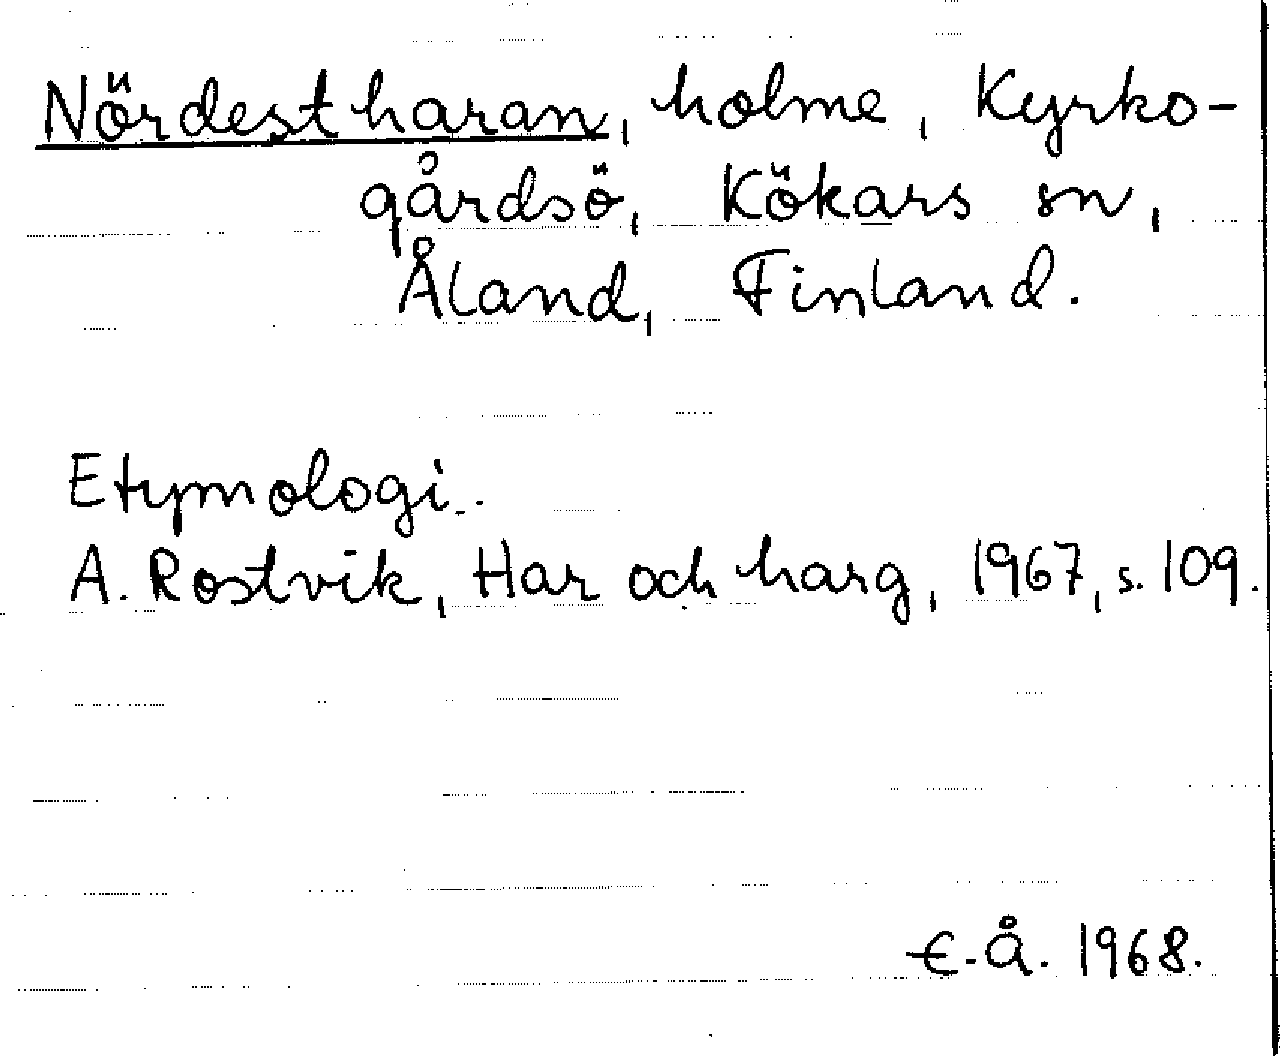 Nördestharan, holme, Kyrko-
gårdsö, Kökars sn,
Åland, Finland.
Etymologi.
A. Rostvik, Har och harg, 1967, s. 109.
E.Å. 1968.